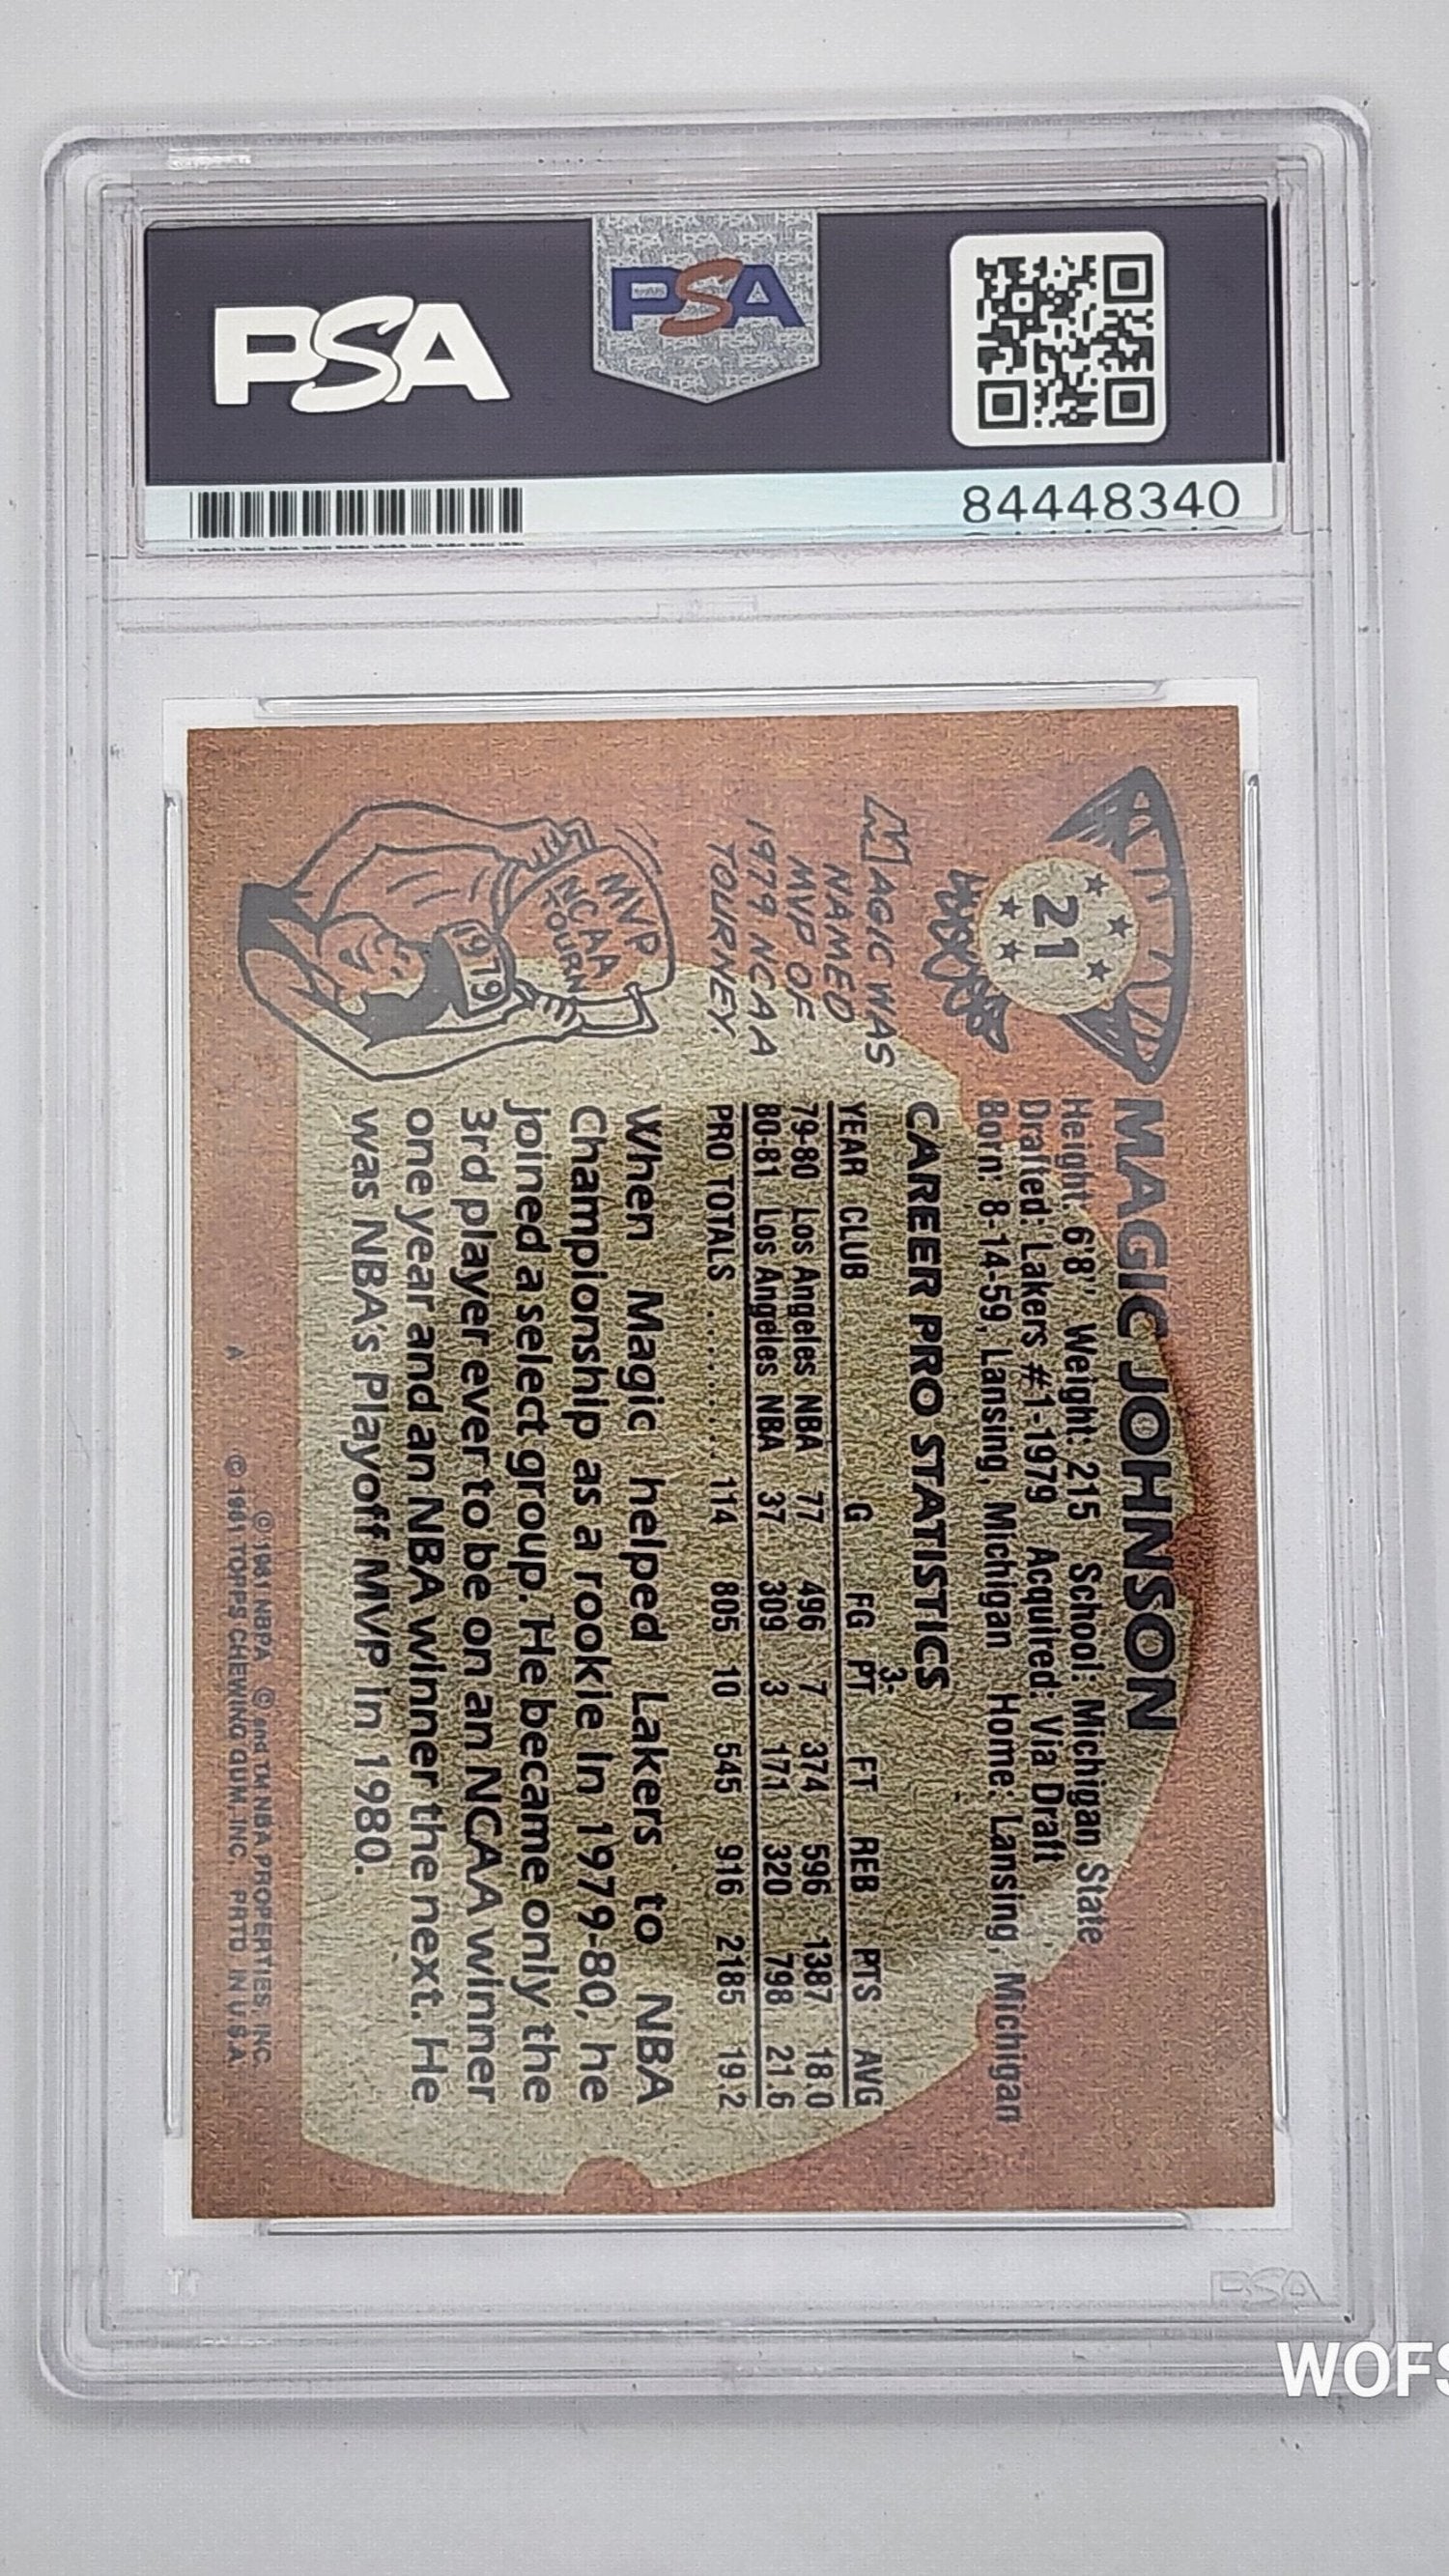 PSA
PSA
84448340
21
MAGIC JOHNSON
Height: 6'8" Weight: 215 School: Michigan State
Drafted: Lakers #1-1979 Acquired: Via Draft
Born: 8-14-59, Lansing, Michigan Home: Lansing, Michigan
MAGIC WAS
NAMED
MVP OF
1979 NCAA
TOURNEY.
MVP
NCAA
TOURN
1979
CAREER PRO STATISTICS
YEAR CLUB G FG 3-PT FT REB PTS AVG
79-80 Los Angeles NBA 77 496 7 374 596 1387 18.0
80-81 Los Angeles NBA 37 309 3 171 320 798 21.6
PRO TOTALS ......... 114 805 10 545 916 2185 19.2
When Magic helped Lakers to NBA
Championship as a rookie in 1979-80, he
joined a select group. He became only the
3rd player ever to be on an NCAA winner
one year and an NBA winner the next. He
was NBA's Playoff MVP in 1980.
© 1981 NBPA © and TM NBA PROPERTIES, INC.
A © 1981 TOPPS CHEWING GUM, INC. PRTD. IN U.S.A.
PSA
WOFS